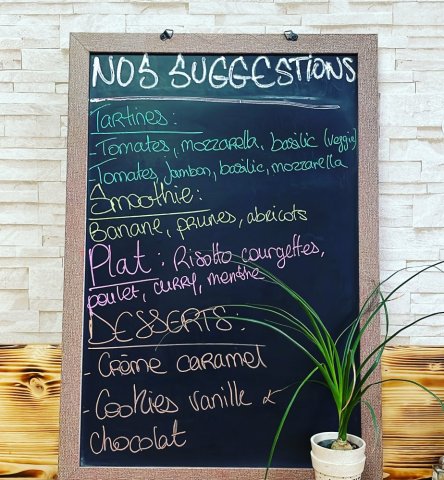 NOS SUGGESTIONS
Tartines:
-Tomates, mozzarella, basilic (veggie)
Tomates, jambon, basilic, mozzarella
Smoothie:
Banane, prunes, abricots
Plat : Risotto courgettes,
poulet, curry, menthe
DESSERTS:
- Crème caramel
- Cookies vanille &
chocolat